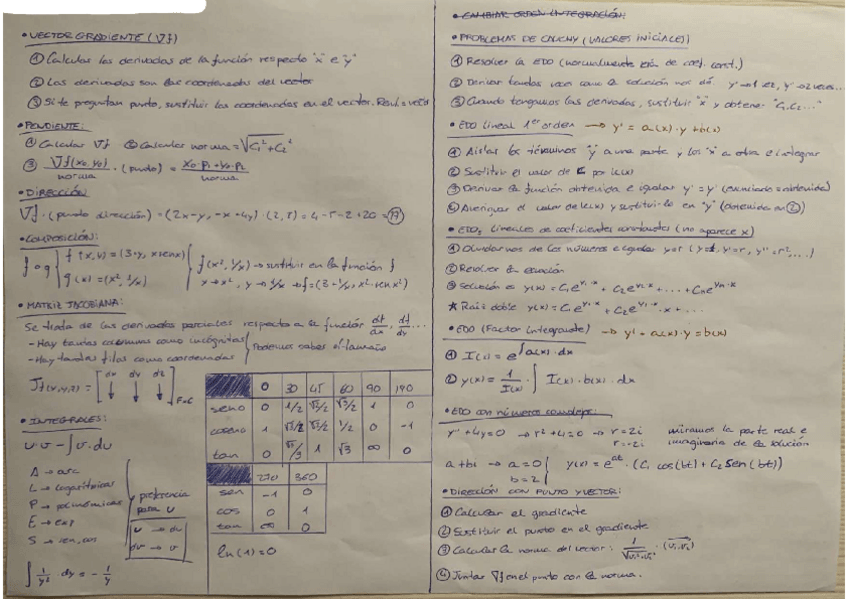 • VECTOR GRADIENTE (∇f)
① Calcular las derivadas de la función respecto "x" e "y"
② Las derivadas son las coordenadas del vector
③ Si te preguntan punto, sustituir las coordenadas en el vector. Resul = vector
• PENDIENTE:
① Calcular ∇f ② Calcular norma = √C₁² + C₂²
③ ∇f(x₀,y₀)/norma · (punto) = x₀·p₁+y₀·p₂/norma
• DIRECCIÓN
∇f · (punto dirección) = (2x-y, -x+4y) · (2, 5) = 4-5-2+20 = 17
• COMPOSICIÓN:
f o g { f(x,y) = (3+y, x senx)
g(x) = (x², 1/x)
f(x², 1/x) → sustituir en la función f
x → x², y → 1/x → f = (3+1/x, x²·senx²)
• MATRIZ JACOBIANA:
Se trata de las derivadas parciales respecto a la función df/dx, df/dy ...
- Hay tantas columnas como incógnitas
- Hay tantas filas como coordenadas
Podemos saber el tamaño
Jf(x,y,z) = [dx dy dz] FxC
• INTEGRALES:
u·v - ∫v·du
A → arc
L → logarítmicas
P → polinómicas
E → exp
S → sen, cos
preferencia para u
u → du
dv → v
∫ 1/y² · dy = -1/y
0 30 45 60 90 180
seno 0 1/2 √2/2 √3/2 1 0
coseno 1 √3/2 √2/2 1/2 0 -1
tan 0 √3/3 1 √3 ∞ 0
270 360
sen -1 0
cos 0 1
tan ∞ 0
ln(1) = 0
• CAMBIAR ORDEN INTEGRACIÓN:
• PROBLEMAS DE CAUCHY (VALORES INICIALES)
① Resolver la EDO (normalmente será de coef. const.)
② Derivar tantas veces como la solución nos dé y' → 1 vez, y'' → 2 veces...
③ Cuando tengamos las derivadas, sustituir "x" y obtener "C₁, C₂..."
• EDO Lineal 1er orden → y' = a(x)·y + b(x)
① Aislar los términos "y" a una parte y los "x" a otra e integrar
② Sustituir el valor de C por k(x)
③ Derivar la función obtenida e igualar y' = y' (enunciado = obtenida)
④ Averiguar el valor de k(x) y sustituirlo en "y" (obtenida en ②)
• EDO, Lineales de coeficientes constantes (no aparece x)
① Olvidarnos de los números e igualar y a r (y=1, y'=r, y''=r², ...)
② Resolver la ecuación
③ Solución = y(x) = C₁e^r₁·x + C₂e^r₂·x + ... + Cₙe^rₙ·x
* Raíz doble y(x) = C₁e^r₁·x + C₂e^r₁·x · x + ...
• EDO (Factor Integrante) → y' + a(x)·y = b(x)
① I(x) = e^∫a(x)·dx
② y(x) = 1/I(x) · ∫ I(x)·b(x)·dx
• EDO con números complejos:
y'' + 4y = 0 → r² + 4 = 0 → r = 2i
r = -2i
miramos la parte real e imaginaria de la solución
a + bi → a = 0
b = 2
y(x) = e^at · (C₁ cos(bt) + C₂ Sen(bt))
• DIRECCIÓN CON PUNTO Y VECTOR:
① Calcular el gradiente
② Sustituir el punto en el gradiente
③ Calcular la norma del vector: 1/√v₁²+v₂² · (v₁,v₂)
④ Juntar ∇f en el punto con la norma.